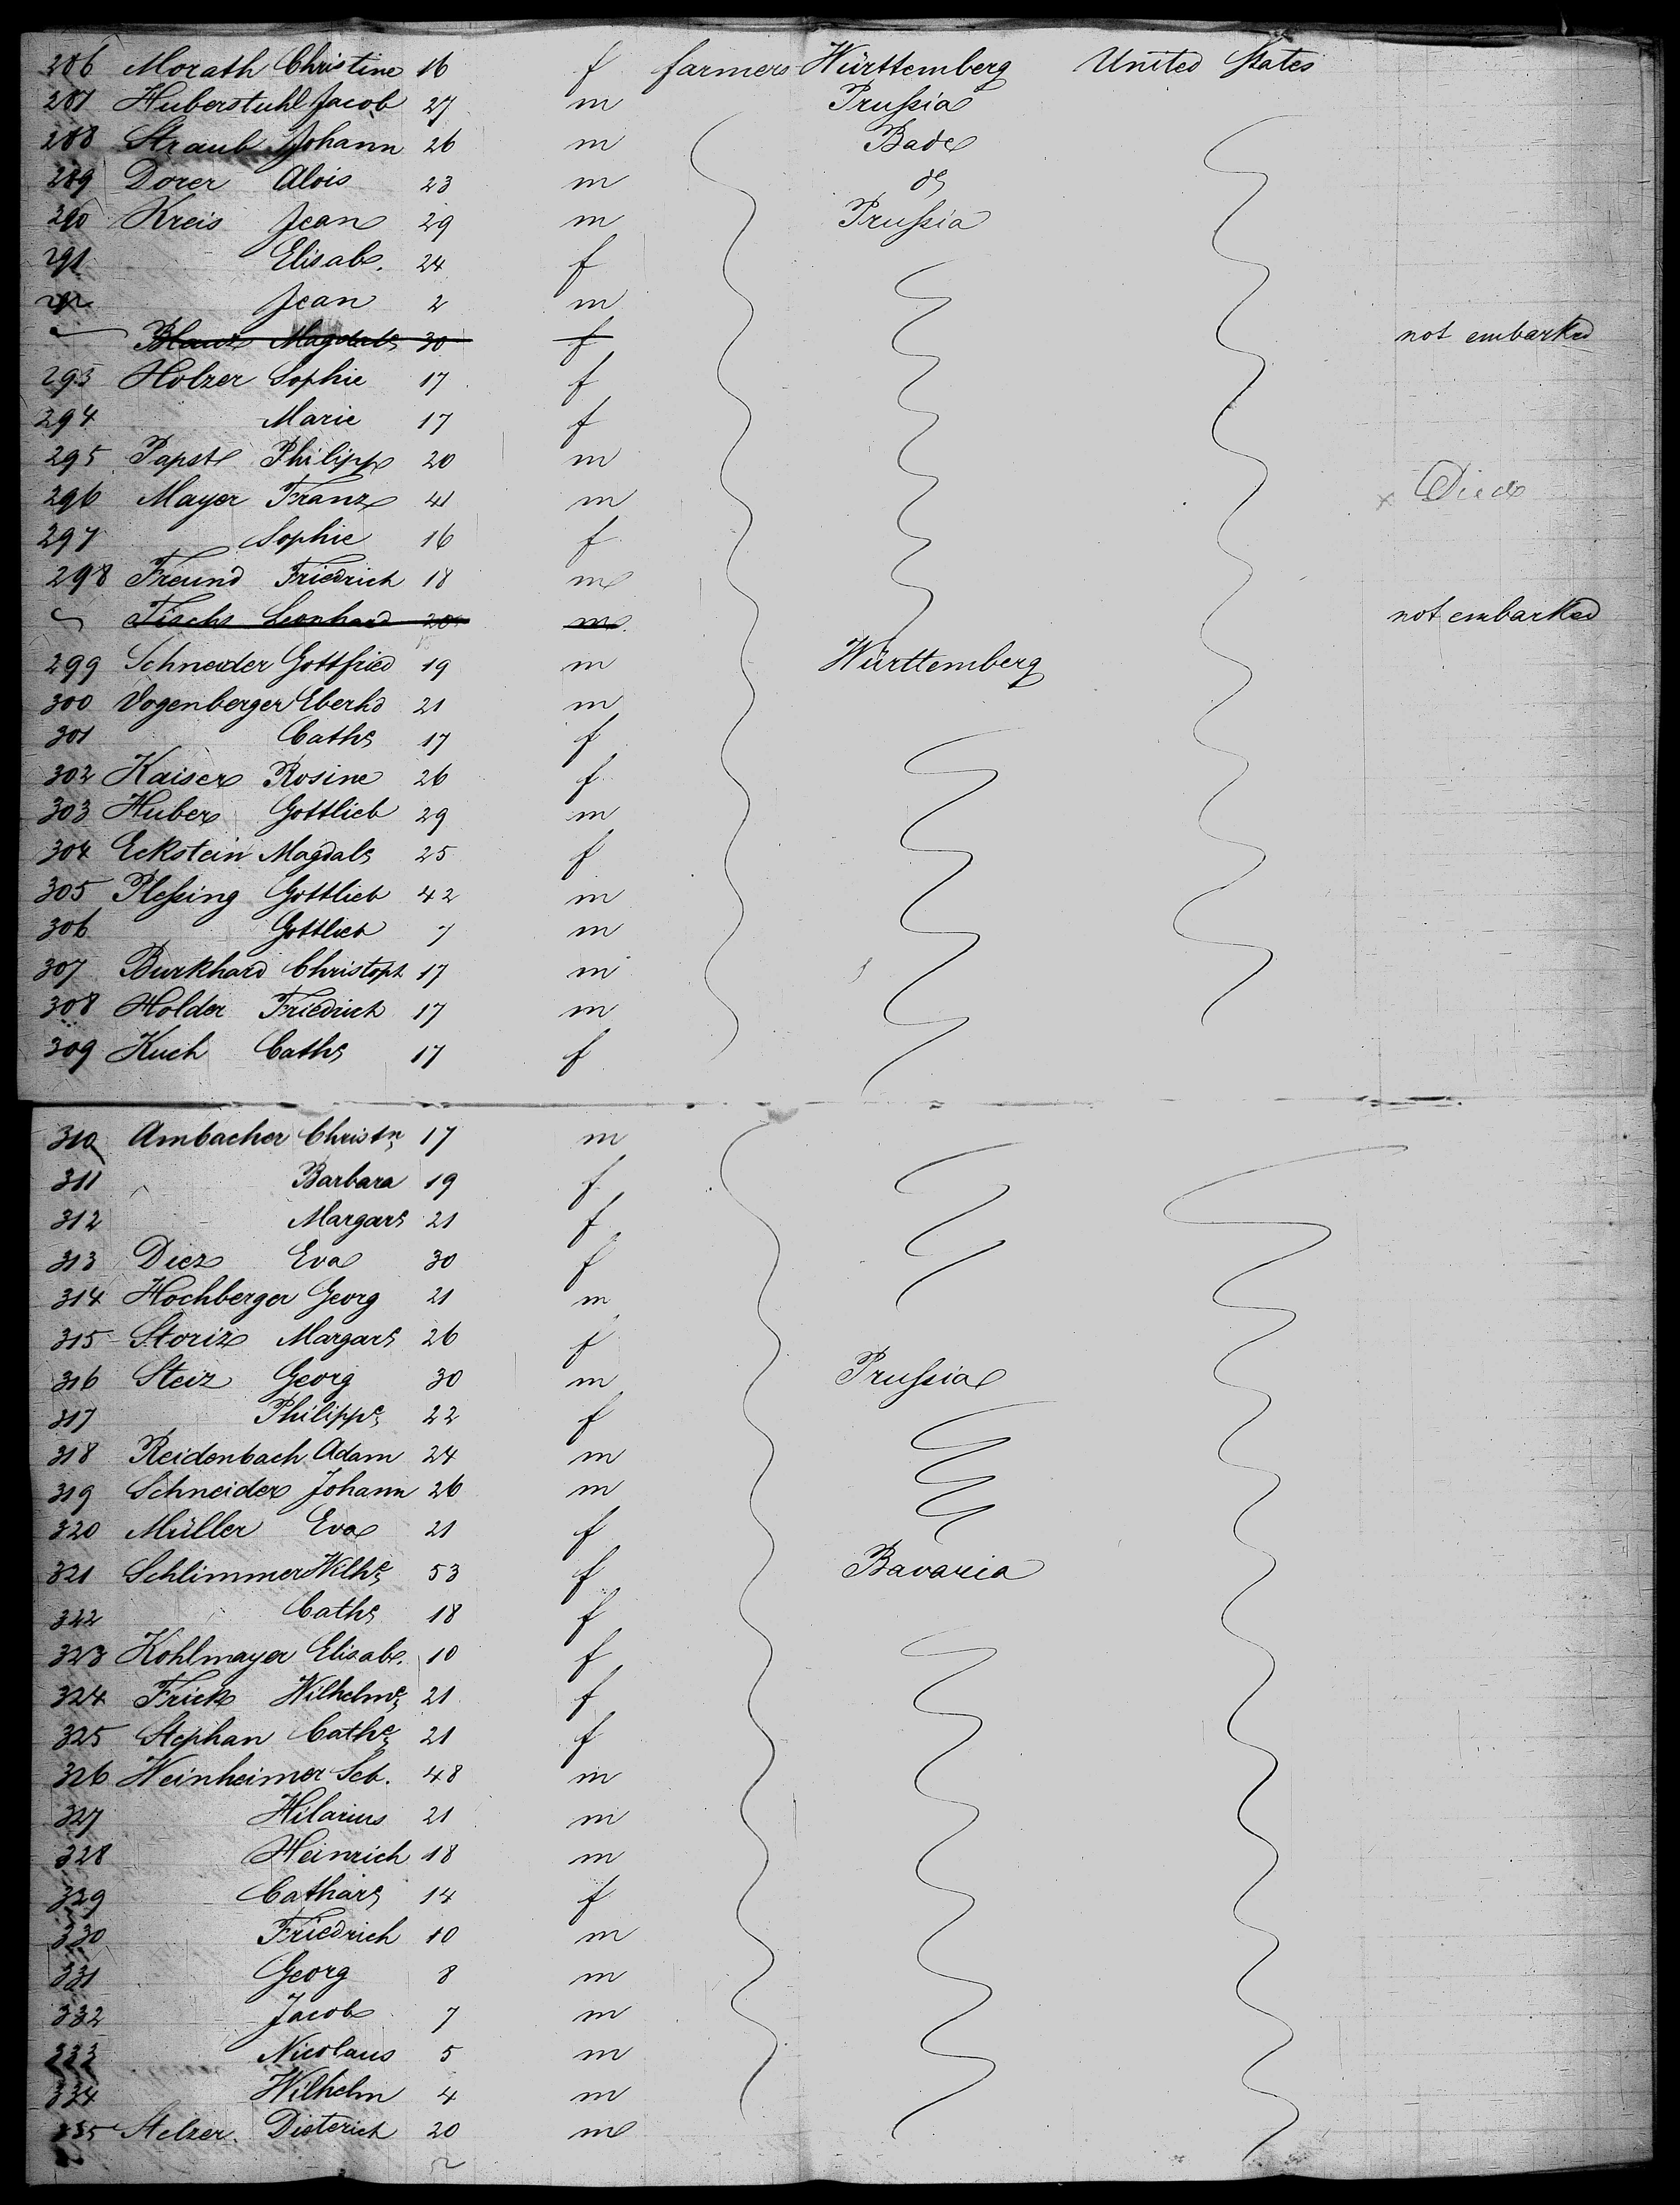 286 Morath Christine 16 f farmers Württemberg United States
287 Huberstuhl Jacob 27 m Prussia
288 Straub Johann 26 m Bade
289 Dorer Alois 23 m do
290 Kreis Jean 29 m Prussia
291 Elisab. 24 f
292 Jean 2 m
Magdale 30 f not embarked
293 Holzer Sophie 17 f
294 Marie 17 f
295 Papst Philipp 20 m
296 Mayer Franz 41 m x Died
297 Sophie 16 f
298 Freund Friedrich 18 m
Leonhard 20 m not embarked
299 Schneider Gottfried 19 m Württemberg
300 Vogenberger Eberhd 21 m
301 Cathe 17 f
302 Kaiser Rosine 26 f
303 Huber Gottlieb 29 m
304 Eckstein Magdale 25 f
305 Plessing Gottlieb 42 m
306 Gottlieb 7 m
307 Burkhard Christoph 17 m
308 Holder Friedrich 17 m
309 Kuch Cathe 17 f
310 Ambacher Christn 17 m
311 Barbara 19 f
312 Margare 21 f
313 Diez Eva 30 f
314 Hochberger Georg 21 m
315 Storiz Margare 26 f
316 Steiz Georg 30 m Prussia
317 Philippe 22 f
318 Reidenbach Adam 24 m
319 Schneider Johann 26 m
320 Müller Eva 21 f
321 Schlimmer Wilhe 53 f Bavaria
322 Cathe 18 f
323 Kohlmayer Elisab. 10 f
324 Frick Wilhelme 21 f
325 Stephan Cathe 21 f
326 Weinheimer Seb. 48 m
327 Hilarius 21 m
328 Heinrich 18 m
329 Cathare 14 f
330 Friedrich 10 m
331 Georg 8 m
332 Jacob 7 m
333 Nicolaus 5 m
334 Wilhelm 4 m
335 Stelzer Dieterich 20 m